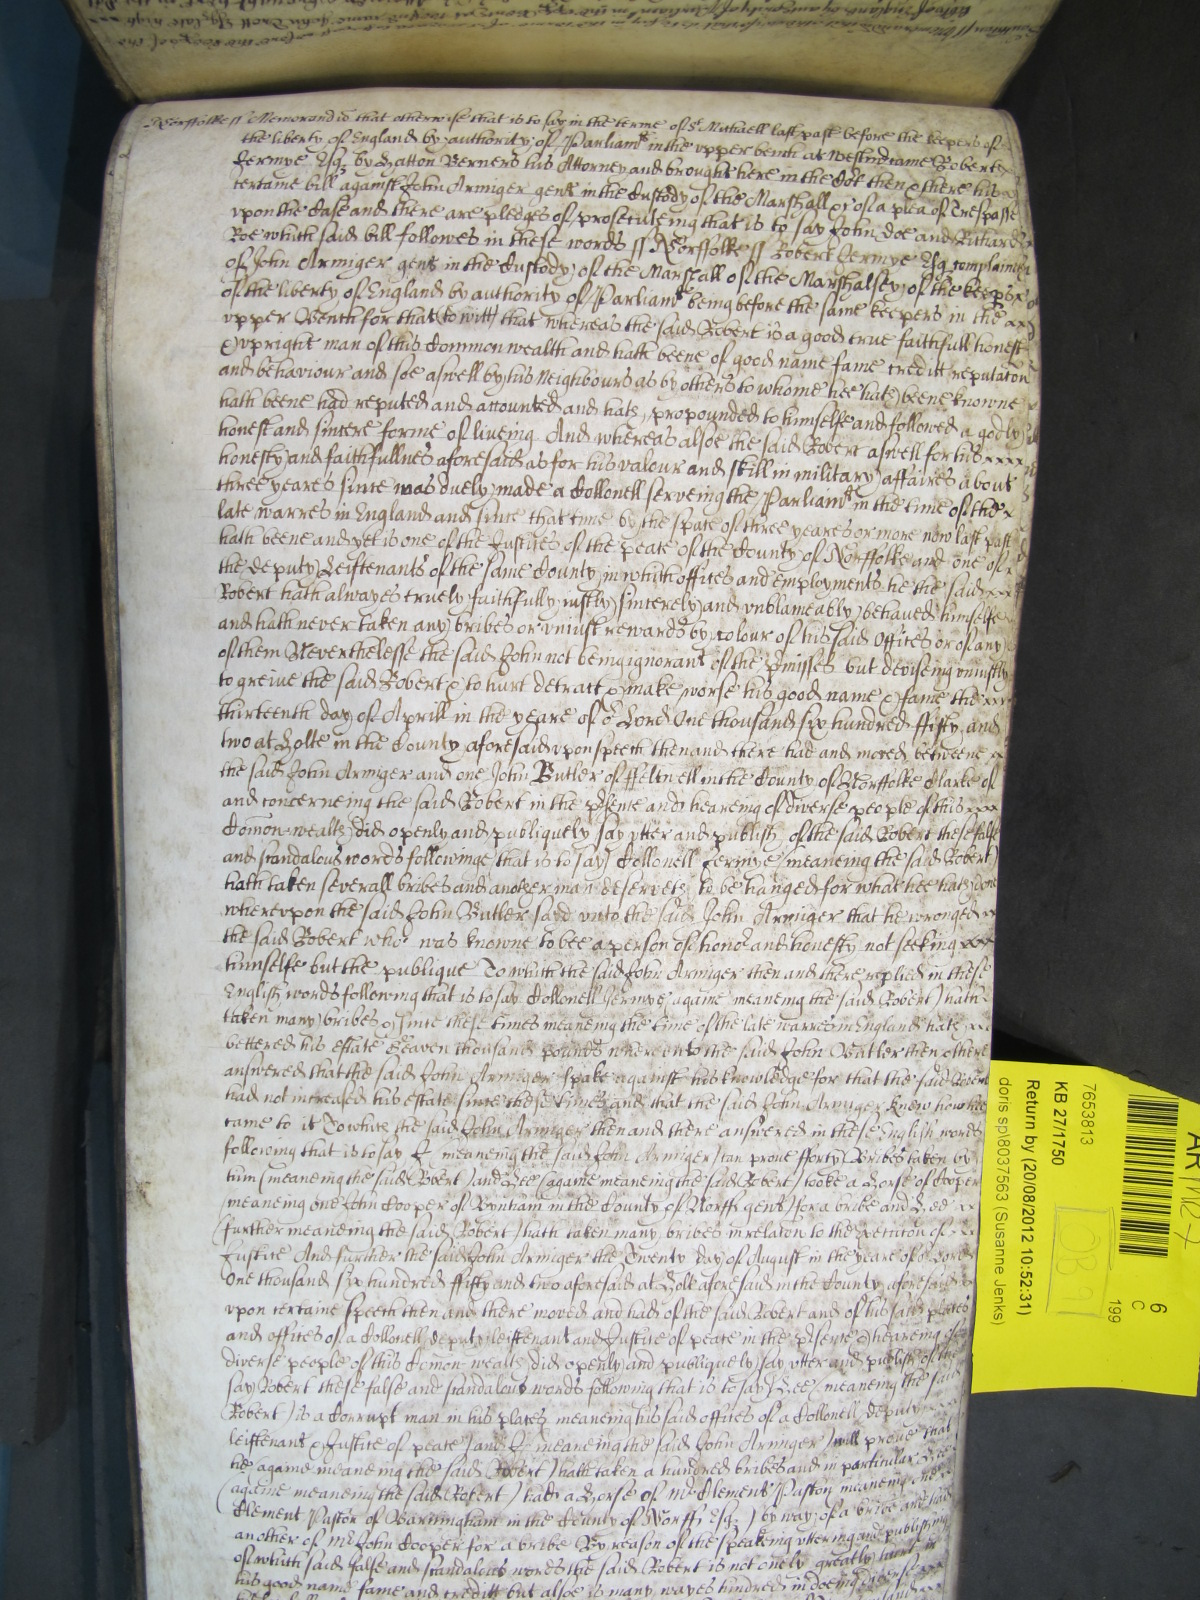 Norffolke ss Memorand̃ that otherwise that is to say in the terme of St Michaell last past before the keepers of
the liberty of England by authority of Parliamt in the vpper bench at Westm̃ came Robert
Jermye Esq by Hatton Berners his Attorney and brought here in the Cort then & there his
certaine bill against John Armiger gent in the Custody of the Marshall &c of a plea of Trespasse
vpon the Case and there are pledges of prosecuteing that is to say John Doe and Richard
Roe which said bill followes in these words ss Norffolke ss Robert Jermye Esq complaines
of John Armiger gent in the Custody of the Marshall of the Marshalsey of the keeps
of the liberty of England by authority of Parliamt being before the same keepers in the
vpper Bench for that (to witt) that whereas the said Robert is a good true faithfull honest
& vpright man of this Common wealth and hath beene of good name fame creditt reputacon
and behaviour and soe aswell by his Neighbours as by others to whome hee hath beene knowne
hath beene had reputed and accounted and hath propounded to himselfe and followed a godly
honest and sincere forme of liveing And whereas alsoe the said Robert aswell for his
honesty and faithfullnes aforesaid as for his valour and skill in military affaires about
three yeares since was duely made a Collonell serveing the Parliamt in the time of the
late warres in England and since that time by the space of three yeares or more now last past
hath beene and yet is one of the Justices of the peace of the County of Norffolke and one of
the deputy Leiftenants of the same County in which offices and employments he the said
Robert hath alwayes truely faithfully iustly sincerely and vnblameably behaved himselfe
and hath never taken any bribes or vniust rewards by colour of his said Offices or of any
of them Neverthelesse the said John not being ignorant of the p̃misses but devising vniustly
to greive the said Robert & to hurt detract & make worse his good name & fame the
thirteenth day of Aprill in the yeare of or Lord One thousand six hundred fifty and
two at Holte in the County aforesaid vpon speech then and there had and moved betweene
the said John Armiger and one John Butler of ffeltwell in the County of Norffolke Clarke of
and concerneing the said Robert in the p̃sence and heareing of diverse people of this
Com̃on-wealth did openly and publiquely say vtter and publish of the said Robert these false
and scandalous words followinge that is to say Collonell Jermye (meaneing the said Robert)
hath taken severall bribes and another man deserveth to be hanged for what hee hath done
wherevpon the said John Butler said vnto the said John Armiger that he wronged
the said Robert who was knowne to bee a person of honor and honesty not seeking
himselfe but the publique To which the said John Armiger then and there replied in these
English words following that is to say Collonell Jermye (againe meaneing the said Robert) hath
taken many bribes & since these times meaneing the time of the late warres in England hath
bettered his estate Seaven thousand pounds wherevnto the said John Butler then & there
answered that the said John Armiger spake against his knowledge for that the said Robert
had not increased his estate since these times and that the said John Armiger knew how hee
came to it To which the said John Armiger then and there answered in these English words
following that is to say I (meaneing the said John Armiger) can prove fforty Bribes taken by
him (meaneing the said Robert) and Hee (againe meaneing the said Robert) tooke a Horse of Cooper
(meaneing one John Cooper of Bonham in the County of Norff gent) for a bribe and Hee
(further meaneing the said Robert) hath taken many bribes in relacon to the execucon of
Justice And further the said John Armiger the Twenty day of August in the yeare of or Lord
One thousand six hundred fifty and two aforesaid at Holt aforesaid in the County aforesaid
vpon certaine speech then and there moved and had of the said Robert and of his said places
and offices of a Collonell deputy leiftenant and Justice of peace in the p̃sence & heareing of
diverse people of this Com̃on-wealth did openly and publiquely say vtter and publish of the
said Robert these false and scandalous words following that is to say Hee (meaneing the said
Robert) is a Corrupt man in his places meaneing his said offices of a Collonell deputy
leiftenant & Justice of peace) and I (meaneing the said John Armiger) will prove that
he (againe meaneing the said Robert) hath taken a hundred bribes and in particular Hee
(againe meaneing the said Robert) had a Horse of Mr Clement Paston meaneing one
Clement Paston of Barningham in the County of Norff Esq) by way of a bribe and had
another of Mr John Cooper for a bribe By reason of the speaking vttering and publishing
of which said false and scandalous words the said Robert is not onely greatly hurt in
his good name fame and creditt but alsoe is many wayes hindred in doeing diverse
7653813
KB 27/1750
Return by (20/08/2012 10:52:31)
doris sp\8037563 (Susanne Jenks)
6
C
199